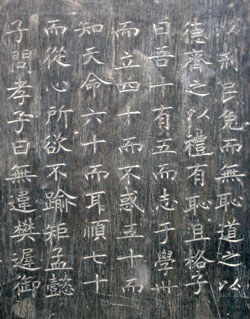 以刑民免而無恥道之以
德齊之以禮有恥且格子
曰吾十有五而志于學卅
而立四十而不惑五十而
知天命六十而耳順七十
而從心所欲不踰矩孟懿
子問孝子曰無違樊遲御